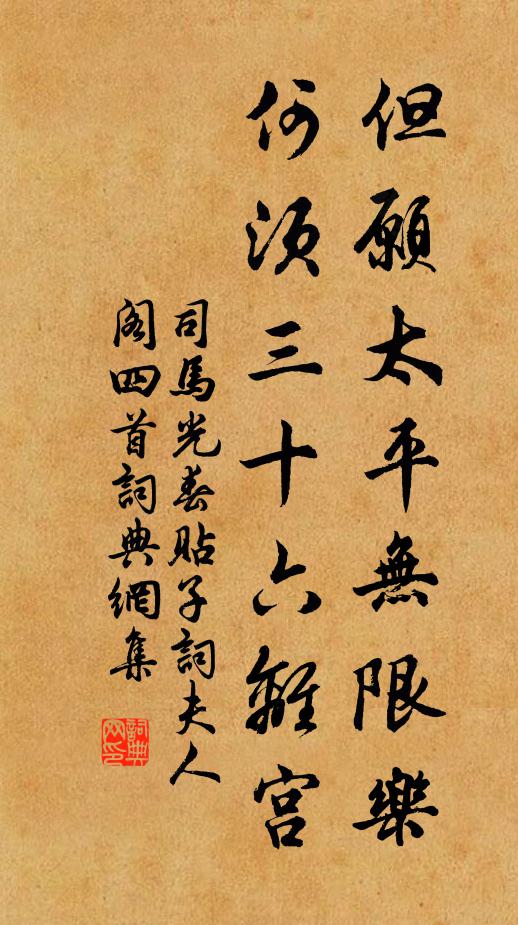 但願太平無限樂
何須三十六離宮
司馬光春貼子詞夫人
閣四首詞典網集
詞典網印